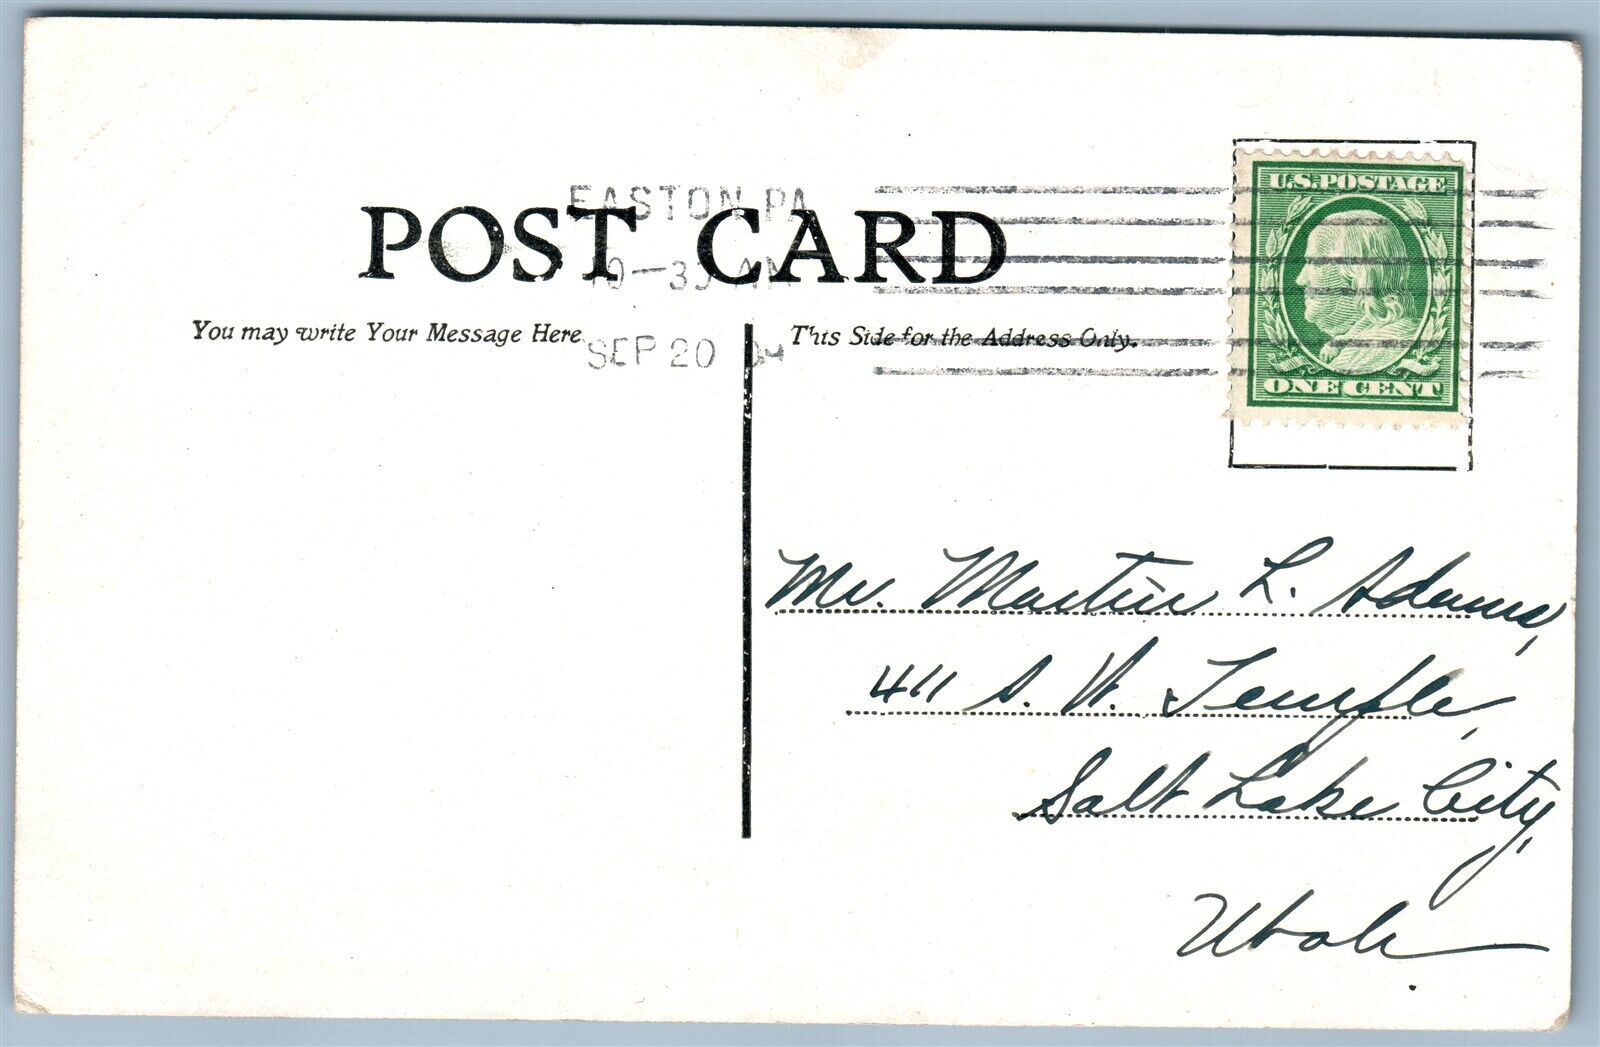 EASTON, PA
POST CARD
10-30 AM
SEP 20
You may write Your Message Here
This Side for the Address Only.
U.S. POSTAGE
ONE CENT
Mr. Martin L. Adams,
411 S. W. Temple,
Salt Lake City,
Utah.